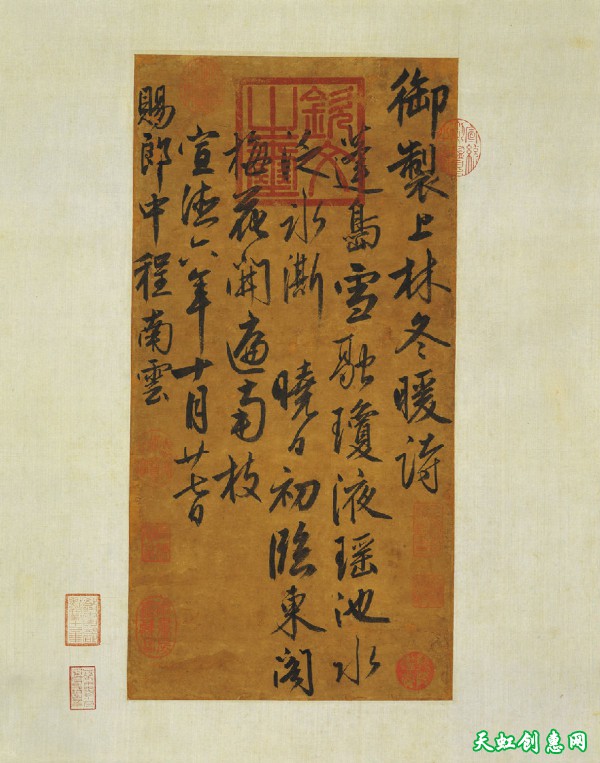 御製上林冬暖詩
蓬島雪融瓊液瑤池水
冰澌 曉日初臨東閣
梅花開遍南枝
宣德六年十月廿七日
賜郎中程南雲
欽文之璽
天虹创惠网